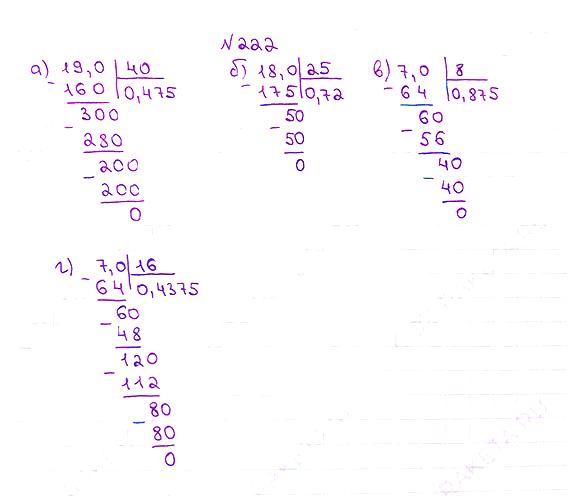 №222
а) 19,0 | 40
- 160 | 0,475
300
- 280
200
- 200
0
б) 18,0 | 25
- 175 | 0,72
50
- 50
0
в) 7,0 | 8
- 64 | 0,875
60
- 56
40
- 40
0
г) 7,0 | 16
- 64 | 0,4375
60
- 48
120
- 112
80
- 80
0